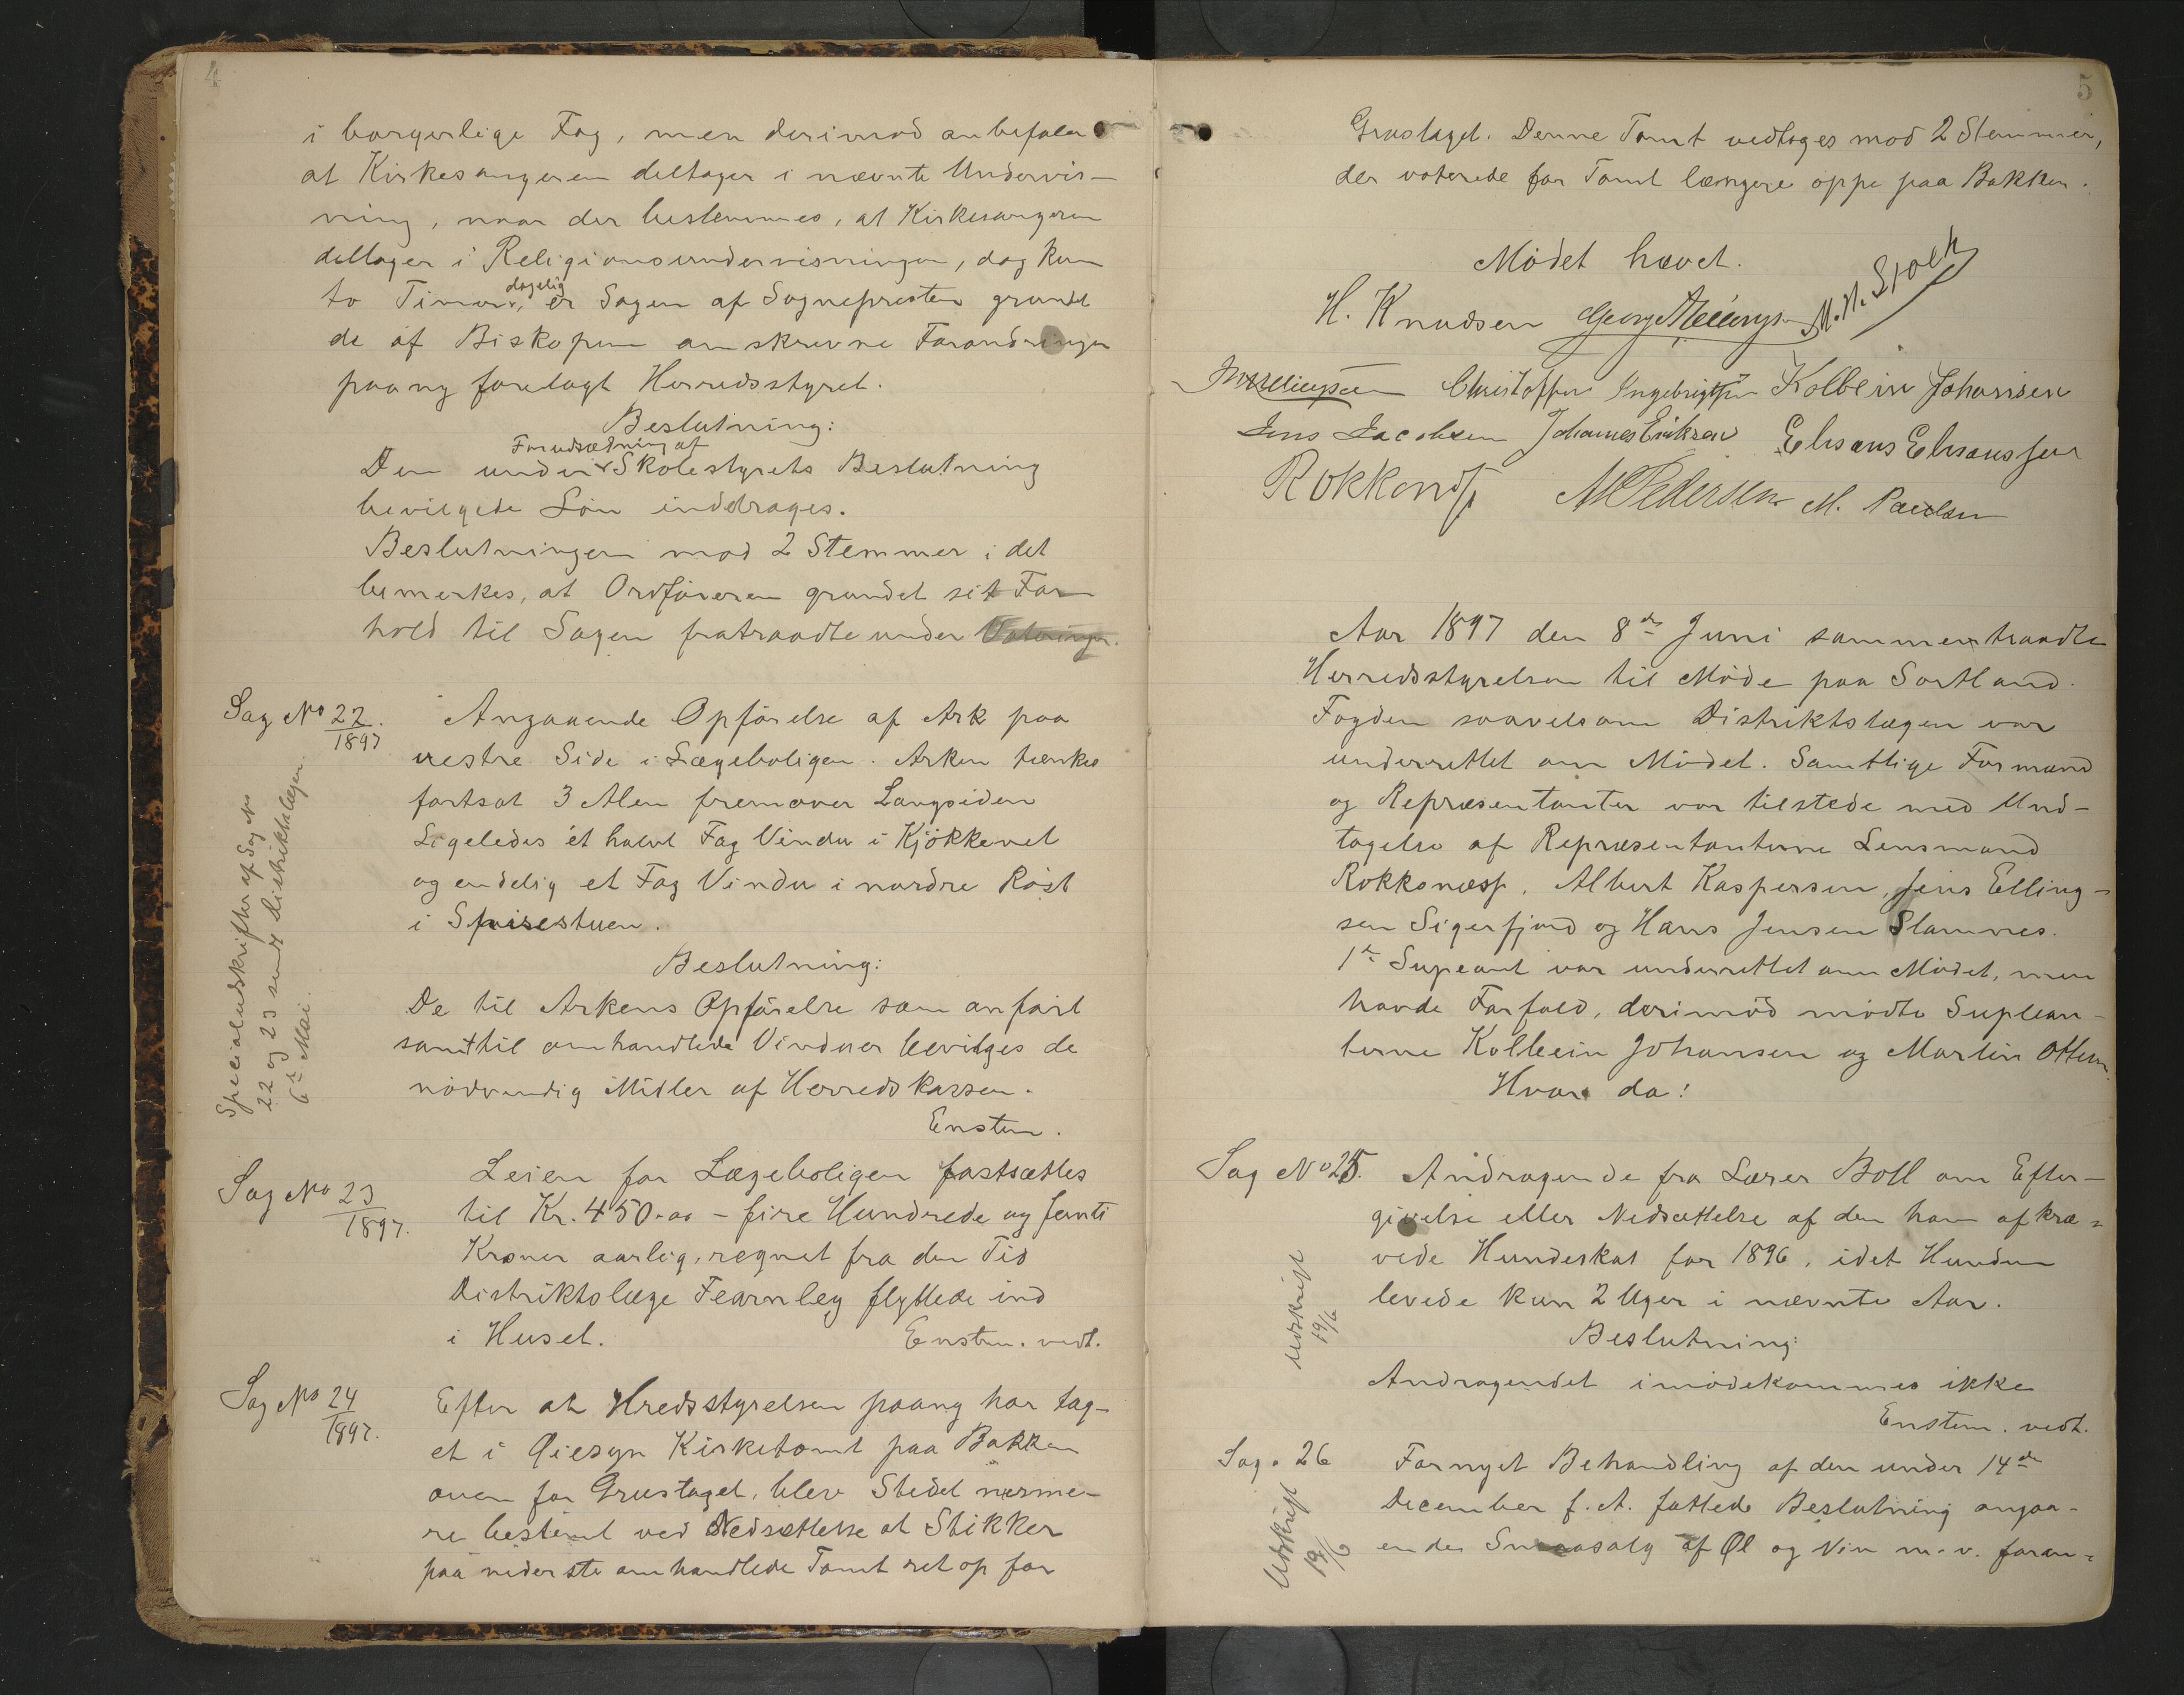 4
i borgerlige Fag, men derimod anbefaler
at Kirkesangeren deltager i nævnte Undervis-
ning, naar der bestemmes, at Kirkesangeren
deltager i Religionsundervisningen, dog kun
to Timer dagelig, er Sagen af Sognepresten grundet
de af Biskopen anskrevne Forandringer
paany forelagt Herredsstyret.
Beslutning:
Forudsætning af
Den under Skolestyrets Beslutning
bevilgede Løn inddrages.
Beslutningen mod 2 Stemmer i det
bemerkes, at Ordføreren grundet sit For
hold til Sagen fratraadte under Voteringen.
Sag No 22/1897. Angaaende Opførelse af Ark paa
vestre Side i Lægeboligen. Arken tænkes
fortsat 3 Alen fremover Langsiden
Ligeledes ét halvt Fag Vindu i Kjøkkenet
og endelig et Fag Vindu i nordre Røst
i Spisestuen.
Beslutning:
De til Arkens Opførelse som anført
samt til omhandlede Vinduer bevilges de
nødvendig Midler af Herredskassen.
Enstem.
Specialudskrifter af Sag No
22 og 23 sendt Distriktslægen
6te Mai.
Sag No 23/1897. Leien for Lægeboligen fastsættes
til Kr. 450.00 - fire Hundrede og femti
Kroner aarlig, regnet fra den Tid
Distriktslæge Fearnley flyttede ind
i Huset. Enstem. vedt.
Sag No 24/1897. Efter at Hredsstyrelsen paany har tag-
et i Øiesyn Kirketomt paa Bakken
oven for Grustaget, blev Stedet nærme-
re bestemt ved Nedsættelse at Stikker
paa nederste omhandlede Tomt ret op for
5
Grustaget. Denne Tomt vedtages mod 2 Stemmer,
der voterede for Tomt længere oppe paa Bakken.
Mødet hævet.
H. Knudsen George Ellingsen M. N. Stock
Christoffer Ingebrigtsen Kolbein Johansen
Jens Jacobsen Johannes Eriksen Elisæus Elisæussen
Rokkonæs M Pedersen M. Paulsen
Aar 1897 den 8de Juni sammentraadte
Herredsstyrelsen til Møde paa Sortland.
Fogden saavelsom Distriktslægen var
underrettet om Mødet. Samtlige Formænd
og Repræsentanter var tilstede med Und-
tagelse af Repræsentanterne Lensmand
Rokkonæs, Albert Kaspersen, Jens Elling-
sen Sigerfjord og Hans Jensen Slamnes.
1te Supeant var underrettet om Mødet, men
havde Forfald, derimod mødte Suplean-
terne Kolbein Johansen og Martin Ottem.
Hvor da!
Sag No 25. Andragende fra Lærer Boll om Efter-
givelse eller Nedsættelse af den ham afkræ-
vede Hundeskat for 1896, idet Hunden
levede kun 2 Uger i nævnte Aar.
Beslutning:
Andragendet imødekommes ikke
Enstem. vedt.
Udskrift
19/6
Sag. 26 Fornyet Behandling af den under 14de
December f. A. fattede Beslutning angaa-
ende Smaasalg af Øl og Vin m. v. foran-
Udskrift
19/6